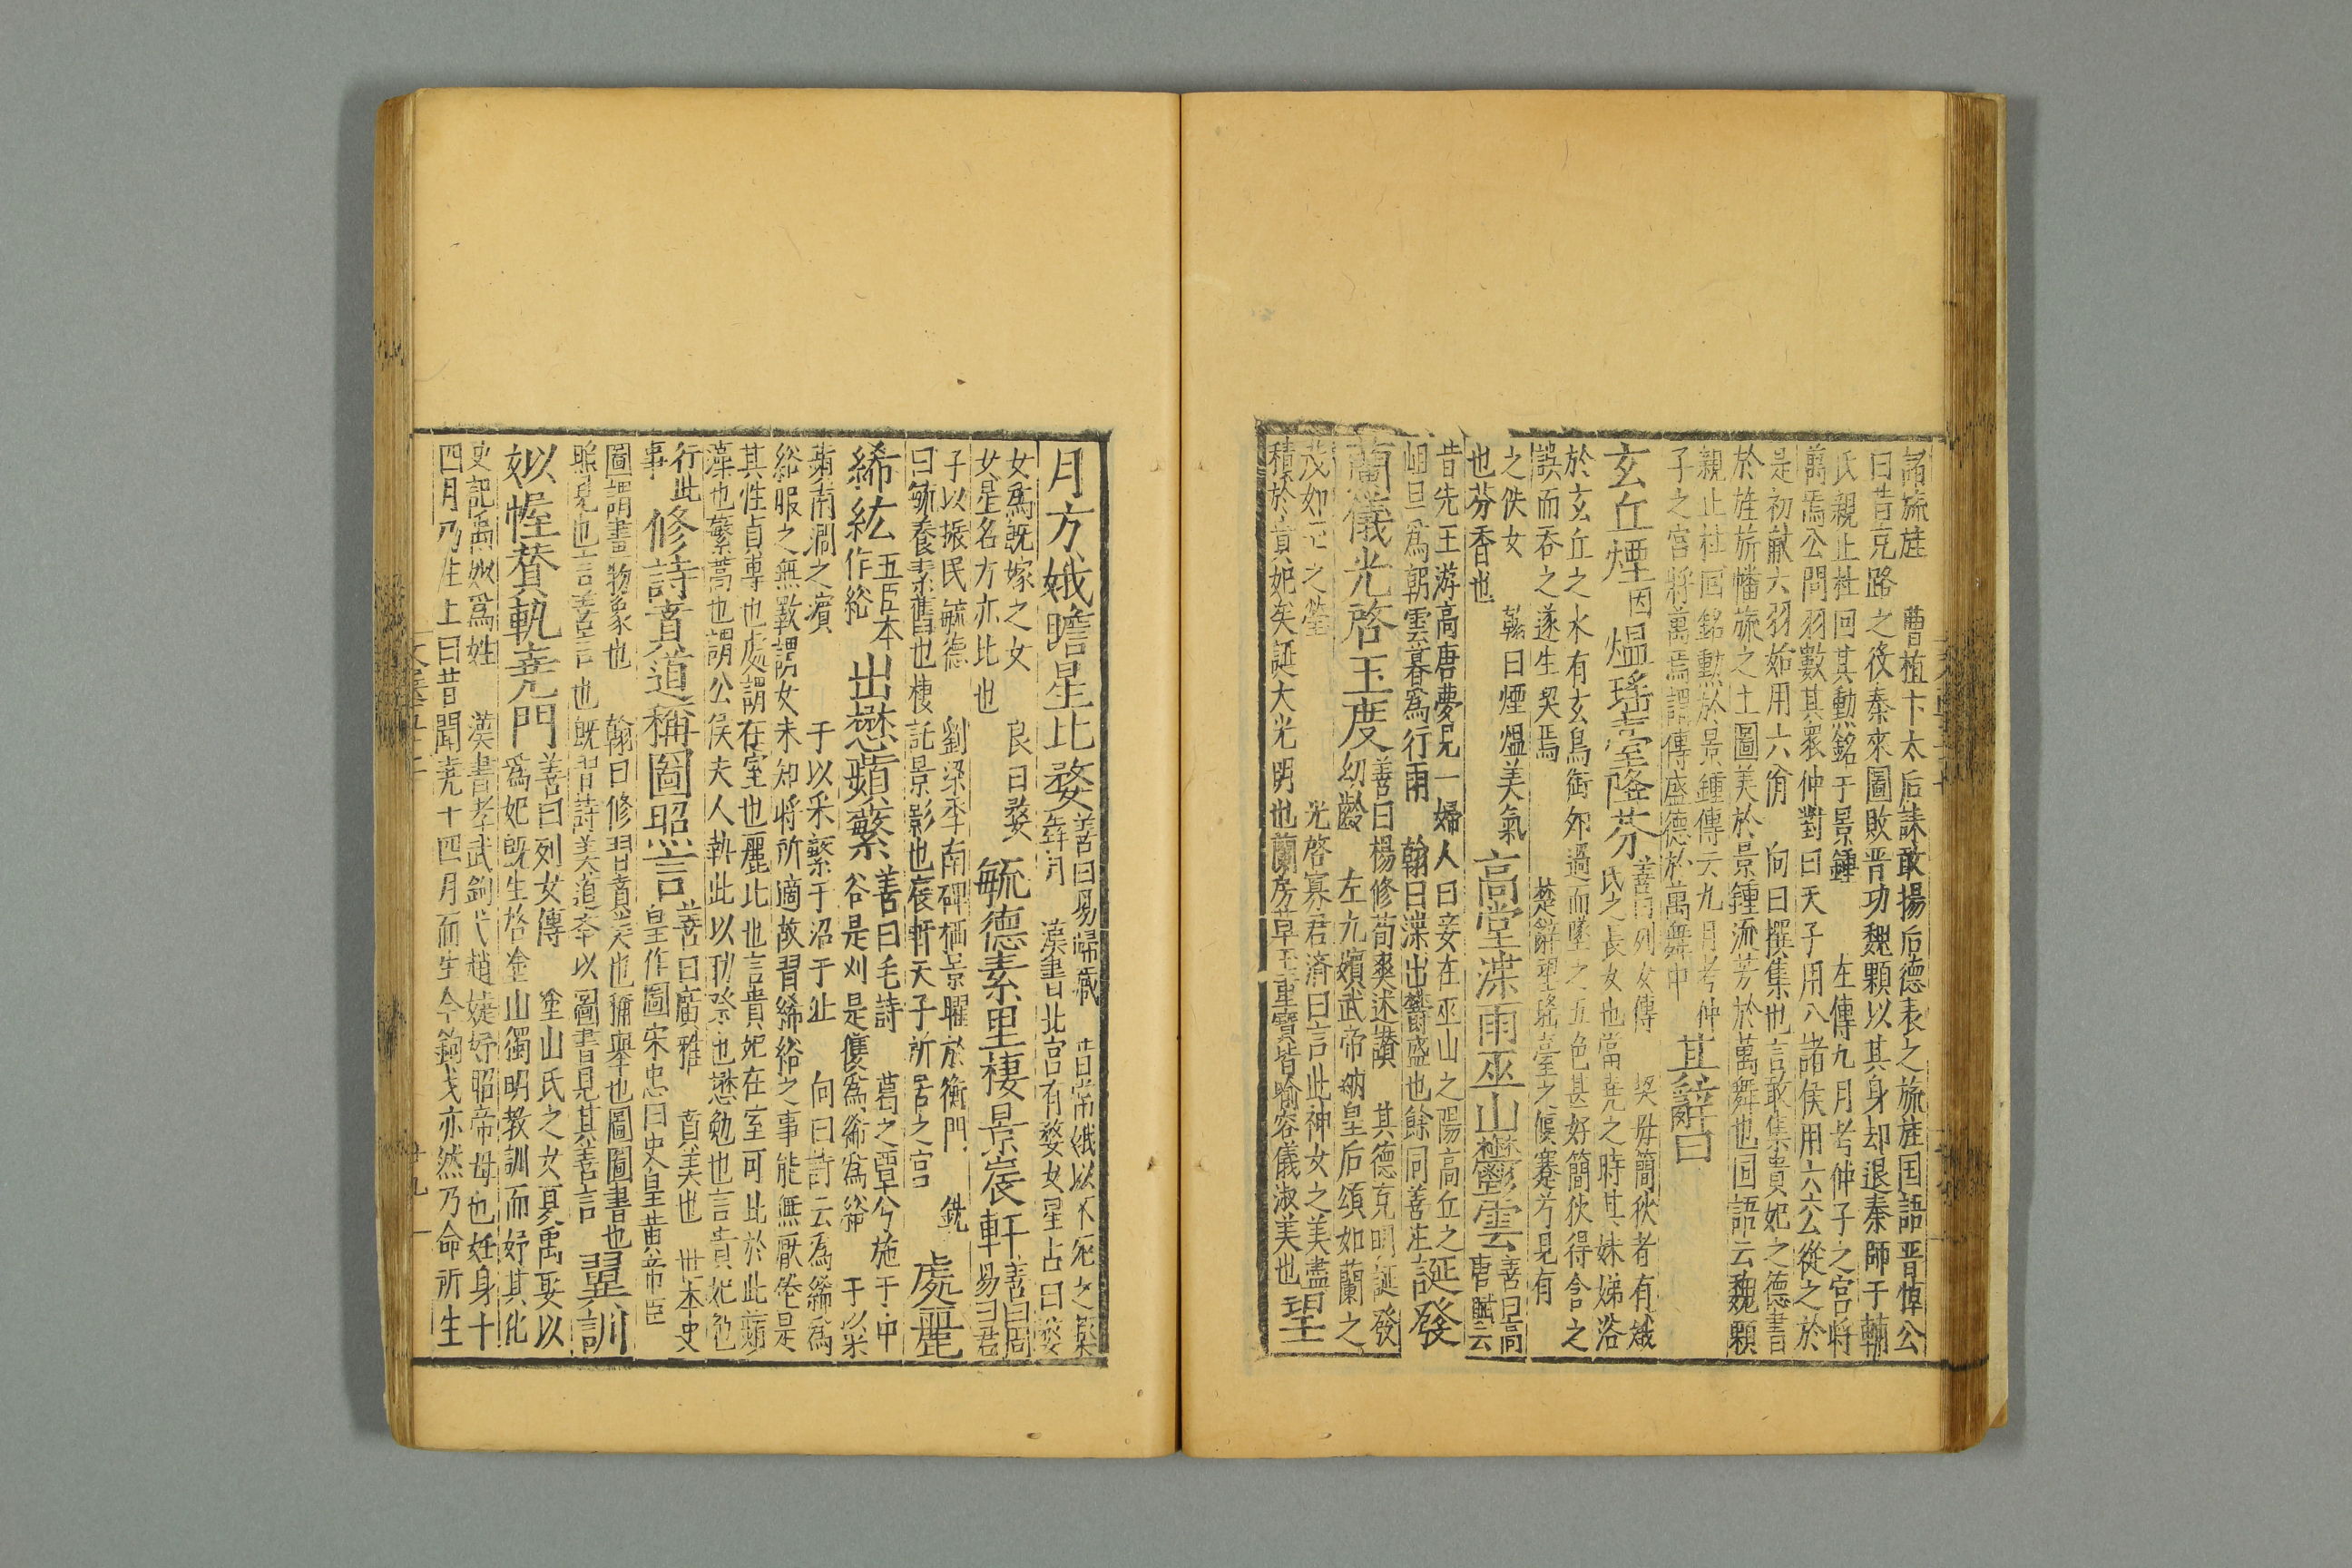 諸旒旌　曹植卞太后誄敢揚后德表之旒旌国語晋悼公
曰昔克路之役秦來圖敗晋功魏顆以其身却退秦師于輔
氏親止杜回其勳銘于景鍾　左傳九月考仲子之宮將
萬焉公問羽數其衆仲對曰天子用八諸侯用六公從之於
是初獻六羽始用六佾　向曰撰集也言敢集貴妃之德書
於旌旂幡旒之上圖美於景鍾流芳於萬舞也国語云魏顆
親止杜回銘勲於景鍾傳云九月考仲
子之宮將萬焉謂傳盛德於萬舞中
其辭曰
玄丘煙因熅瑤臺降芬
善曰列女傳　契母簡狄者有娀
氏之長女也當堯之時其妹娣浴
於玄丘之水有玄鳥銜卵過而墜之五色甚好簡狄得含之
誤而吞之遂生契焉　楚辭望瑤臺之偃蹇兮見有
之佚女　翰曰煙熅美氣
也芬香也
高堂渫雨巫山欝雲
善曰高
唐賦云
昔先王游高唐夢見一婦人曰妾在巫山之陽高丘之
岨旦爲朝雲暮爲行雨　翰曰渫出欝盛也餘同善注
誕發
蘭儀光啓玉度
善曰楊修荀爽述讃　其德克明誕發
幼齡　左九嬪武帝納皇后頌如蘭之
茂如玉之瑩　光啓寡君濟曰言此神女之美盡
積於貴妃矣誕大光明也蘭芳草玉重寶皆喻容儀淑美也
望
月方娥瞻星比婺
善曰易歸藏　昔常娥以不死之藥
奔月　漢書北宮有婺女星占曰婺
女爲既嫁之女　良曰婺
女星名方亦比也
毓德素里棲景宸軒
善曰周
易曰君
子以振民毓德　劉梁季南碑栖景曜於衡門　銑
曰毓養素舊也棲託景影也宸軒天子所居之宮
處麗
絺紘
五臣本
作綌
出懋蘋蘩
善曰毛詩　葛之覃兮施于中
谷是刈是濩爲絺爲綌　于以采
蘋南澗之濱　于以采蘩于沼于沚　向曰詩云爲絺爲
綌服之無斁謂女未知將所適故習絺綌之事能無厭倦是
其性貞專也處謂在室也麗比也言貴妃在室可比於此蘋
藻也蘩蒿也謂公侯夫人執此以助祭也懋勉也言貴妃勉
行此
事
修詩賁道稱圖照言
善曰廣雅　賁美也　丗本史
皇作圖宋忠曰史皇黄帝臣
圖謂畫物象也　翰曰修習賁美也稱舉也圖圖書也
照見也言善言也既習詩美道亦以圖書見其善言
翼訓
姒幄贊軌堯門
善曰列女傳　塗山氏之女夏禹娶以
爲妃既生啓塗山獨明教訓而妤其化
史記禹姒爲姓　漢書孝武鉤弋趙婕妤昭帝母也妊身十
四月乃生上曰昔聞堯十四月而生今鉤弋亦然乃命所生